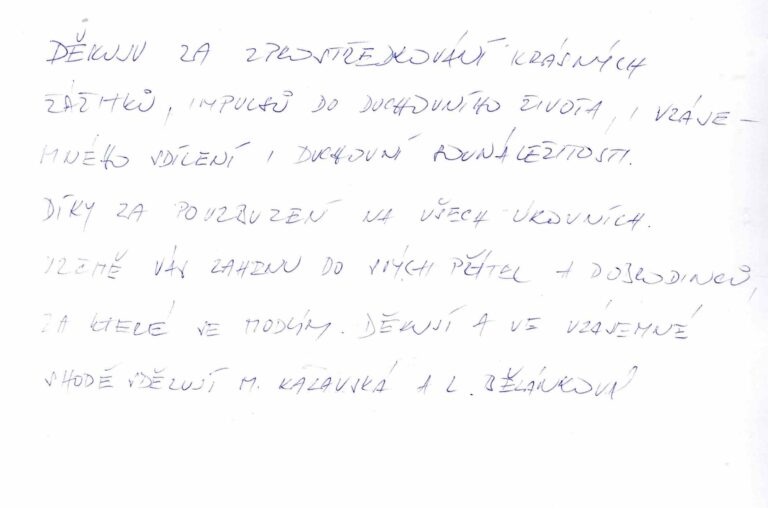 DĚKUJU ZA ZPROSTŘEDKOVÁNÍ KRÁSNÝCH
ZÁŽITKŮ, IMPULSŮ DO DUCHOVNÍHO ŽIVOTA, I VZÁJE-
MNÉHO SDÍLENÍ I DUCHOVNÍ SOUNÁLEŽITOSTI.
DÍKY ZA POVZBUZENÍ NA VŠECH ÚROVNÍCH.
VÁS ZAHRNU DO SVÝCH PŘÁTEL A DOBRODINCŮ,
ZA KTERÉ SE MODLÍM. DĚKUJÍ A VE VZÁJEMNÉ
SHODĚ SDĚLUJÍ M. A L. BĚLÁNKOVÁ